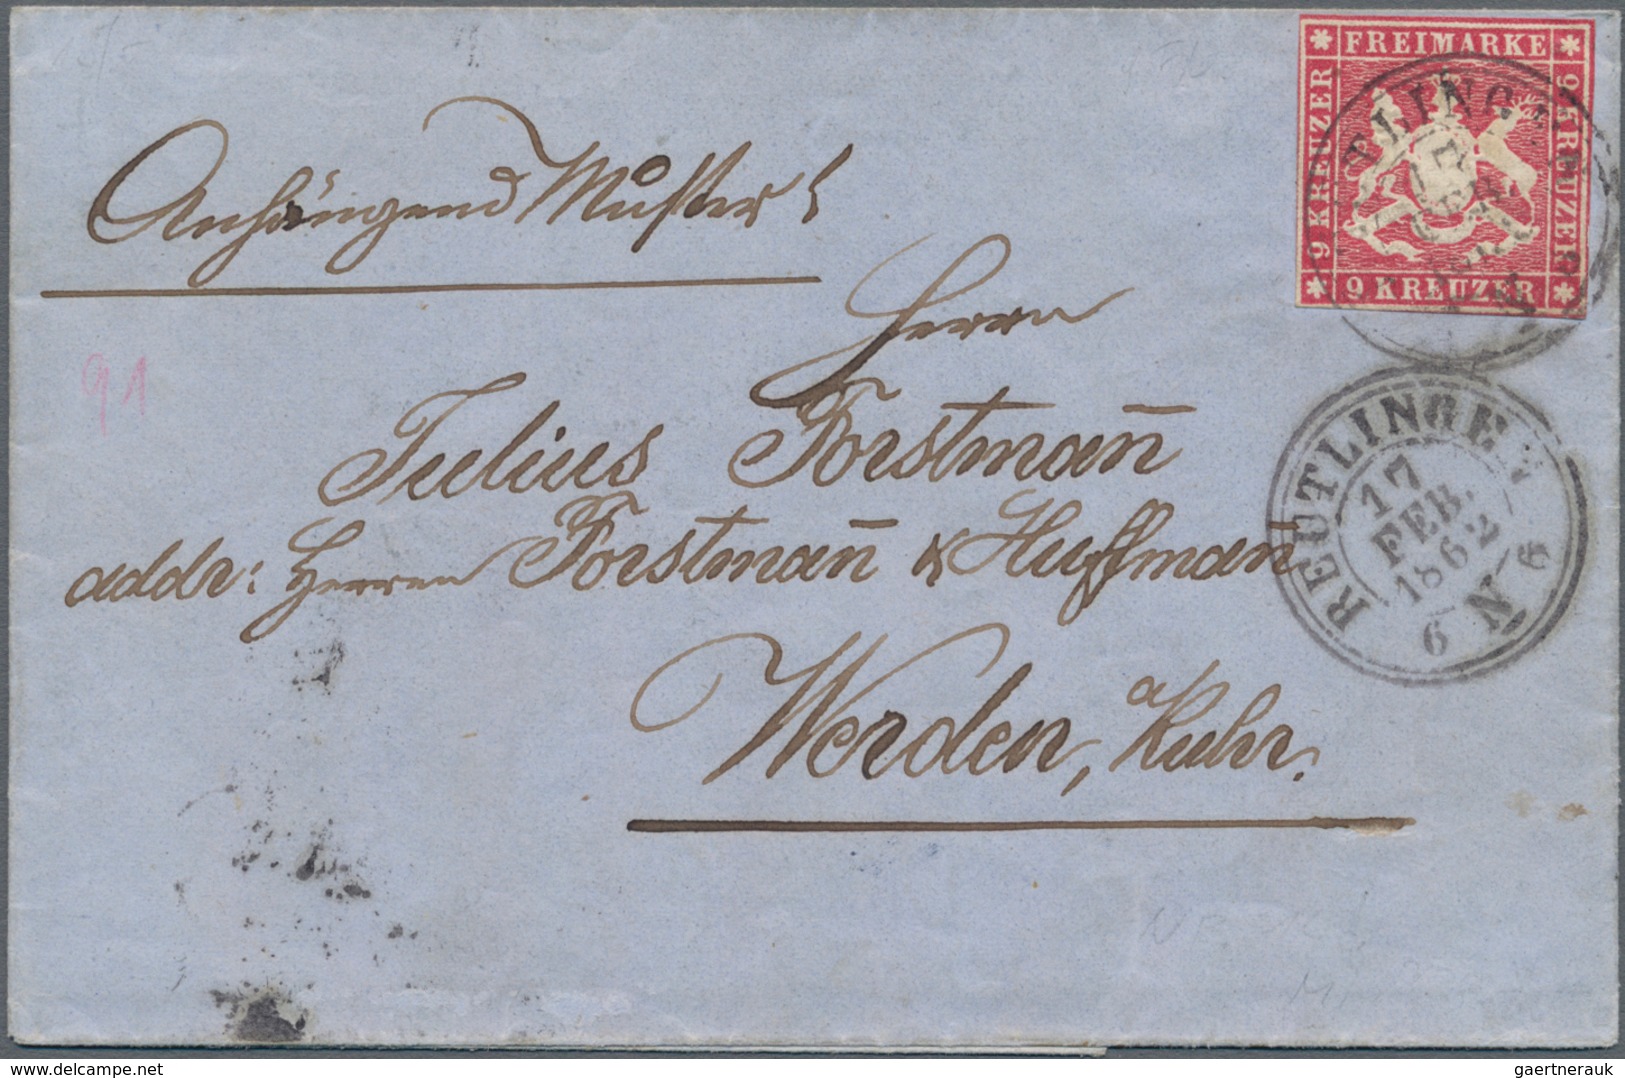 FREIMARKE
9 KREUZER
9 KREUZER
9 KREUZER
Anhängend Muster!
Herrn
Julius Forstman̄
addr: Herren Forstman̄ & Huffman̄
Werden, a/Ruhr.
91
REUTLINGEN
17
FEB.
1862
6 N 6
gaertnerauk